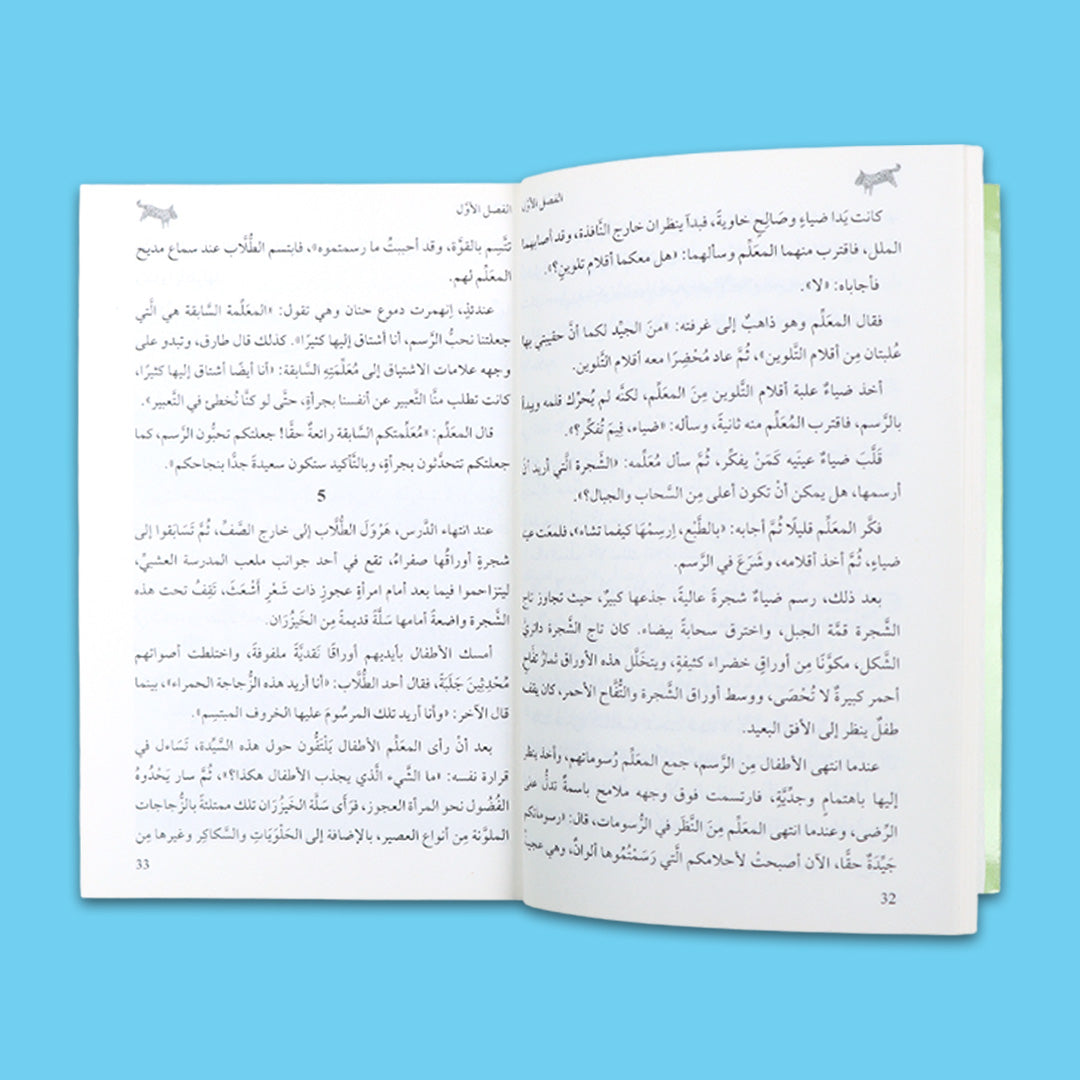 الفصل الأوّل
كانت يَدا ضياءٍ وصَالِحٍ خاويةً، فبدآ ينظران خارج النَّافذة، وقد أصابهما
الملل، فاقترب منهما المعَلِّم وسألهما: «هل معكما أقلام تلوينٍ؟».
فأجاباه: «لا».
فقال المعَلِّم وهو ذاهبٌ إلى غرفته: «منَ الجيِّد لكما أنَّ حقيبتي بها
عُلبتان مِن أقلام التَّلوين»، ثُمَّ عاد مُحْضِرًا معه أقلام التَّلوين.
أخذ ضياءٌ علبة أقلام التَّلوين مِنَ المعَلِّم، لكنَّه لم يُحرِّك قلمه ويبدأ
بالرَّسم، فاقترب المُعَلِّم منه ثانيةً، وسأله: «ضياء، فِيمَ تُفكِّر؟».
قَلَّبَ ضياءٌ عينَيه كَمَنْ يفكِّر، ثُمَّ سأل مُعَلِّمه: «الشَّجرة الَّتي أريد أنْ
أرسمها، هل يمكن أنْ تكون أعلى مِنَ السَّحاب والجبال؟».
فكَّر المعَلِّم قليلًا ثُمَّ أجابه: «بالطَّبْع، اِرسِمْهَا كيفما تشاء»، فلمعَت
ضياءٍ، ثُمَّ أخذ أقلامه، وشَرَعَ في الرَّسم.
بعد ذلك، رسم ضياءٌ شجرةً عاليةً، جذعها كبيرٌ، حيث تجاوز تاج
الشَّجرة قمَّة الجبل، واخترق سحابةً بيضاء. كان تاج الشَّجرة دائريَّ
الشَّكل، مكوَّنًا مِن أوراقٍ خضراء كثيفةٍ، ويتخَلَّل هذه الأوراق ثمارُ تفَّاحٍ
أحمر كبيرةٌ لا تُحْصَى، ووسط أوراق الشَّجرة والتُّفَّاح الأحمر، كان يقف
طفلٌ ينظر إلى الأفق البعيد.
عندما انتهى الأطفال مِنَ الرَّسم، جمع المعَلِّم رُسوماتهم، وأخذ ينظر
إليها باهتمامٍ وجدِّيَّةٍ، فارتسمت فوق وجهه ملامح باسمةٌ تدلُّ على
الرِّضى، وعندما انتهى المعَلِّم مِنَ النَّظَر في الرُّسومات، قال: «رسوماتكم
جَيِّدَةٌ حقًّا، الآن أصبحتْ لأحلامكم الَّتي رَسَمْتُموها ألوانٌ، وهي عجيبةٌ
32
الفصل الأوّل
تتَّسِم بالقوَّة، وقد أحببتُ ما رسمتموه»، فابتسم الطُّلَّاب عند سماع مديح
المعَلِّم لهم.
عندئذٍ، اِنهمرت دموع حنان وهي تقول: «المعَلِّمة السَّابقة هي الَّتي
جعلتنا نحبُّ الرَّسم، أنا أشتاق إليها كثيرًا». كذلك قال طارق، وتبدو على
وجهه علامات الاشتياق إلى مُعَلِّمَتِهِ السَّابقة: «أنا أيضًا أشتاق إليها كثيرًا،
كانت تطلب منَّا التَّعبير عن أنفسنا بجرأةٍ، حتَّى لو كنَّا نُخطئ في التَّعبير».
قال المعَلِّم: «مُعَلِّمتكم السَّابقة رائعةٌ حقًّا! جعلتكم تحبُّون الرَّسم، كما
جعلتكم تتحدَّثون بجرأةٍ، وبالتَّأكيد ستكون سعيدةً جدًّا بنجاحكم».
5
عند انتهاء الدَّرس، هَرْوَلَ الطُّلَّاب إلى خارج الصَّفِّ، ثُمَّ تَسَابَقوا إلى
شجرةٍ أوراقُها صفراءُ، تقع في أحد جوانب ملعب المدرسة العشبيِّ،
ليتزاحموا فيما بعد أمام امرأةٍ عجوزٍ ذات شَعْرٍ أشْعَثَ، تَقِفُ تحت هذه
الشَّجرة واضعةً أمامها سَلَّةً قديمةً مِن الخَيزُرَان.
أمسك الأطفال بأيديهم أوراقًا نَقديَّةً ملفوفةً، واختلطت أصواتهم
مُحْدِثِينَ جَلَبَةً، فقال أحد الطُّلَّاب: «أنا أريد هذه الزُّجاجة الحمراء»، بينما
قال الآخر: «وأنا أريد تلك المرسُومَ عليها الخروف المبتسِم».
بعد أنْ رأى المعَلِّم الأطفال يَلْتَفُّون حول هذه السَّيِّدة، تَسَاءل في
قرارة نفسه: «ما الشَّيء الَّذي يجذب الأطفال هكذا؟»، ثُمَّ سار يَحْدُوهُ
الفُضُول نحو المرأة العجوز، فرَأى سَلَّة الخَيزُرَان تلك ممتلئةً بالزُّجاجات
الملوَّنة مِن أنواع العصير، بالإضافة إلى الحَلْوَيَاتِ والسَّكاكِر وغيرها مِنَ
33